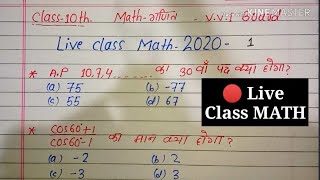 Class-10th. Math-गणित V.V.I Board
KINEMASTER
Live class Math-2020-1
* A.P 10,7,4,....... का 30 वाँ पद क्या होगा?
(a) 75 (b) -77
(c) 55 (d) 67
🔴 Live
Class MATH
* cos60°+1
cos60°-1 का मान क्या होगा?
(a) -2 (b) 2
(c) -3 (d) 3